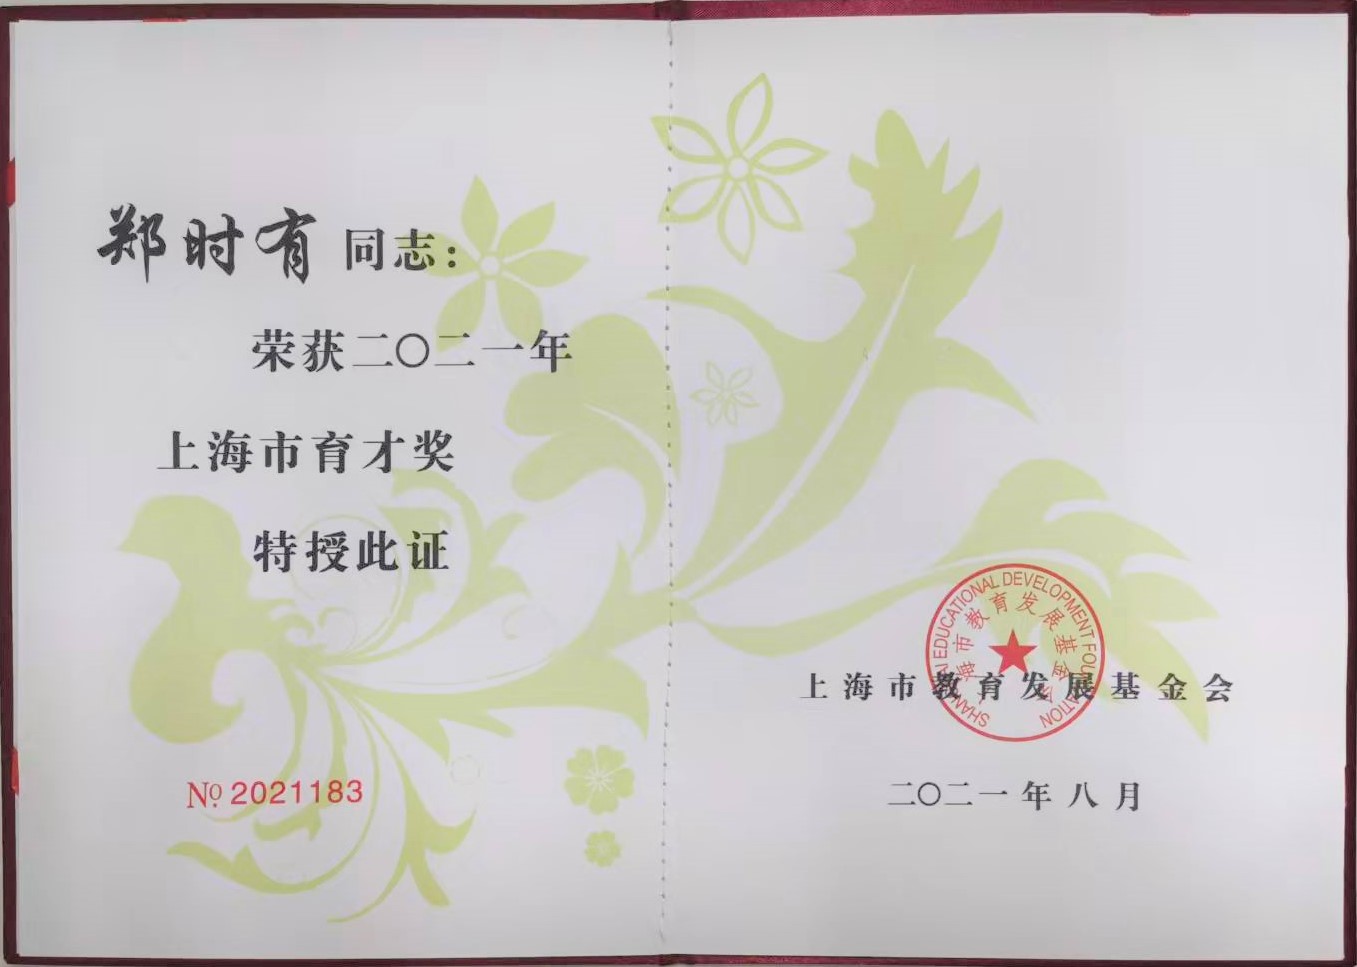 郑时有 同志：
荣获二〇二一年
上海市育才奖
特授此证
№ 2021183
SHANGHAI EDUCATIONAL DEVELOPMENT FOUNDATION
上海市教育发展基金会
上海市教育发展基金会
二〇二一年八月